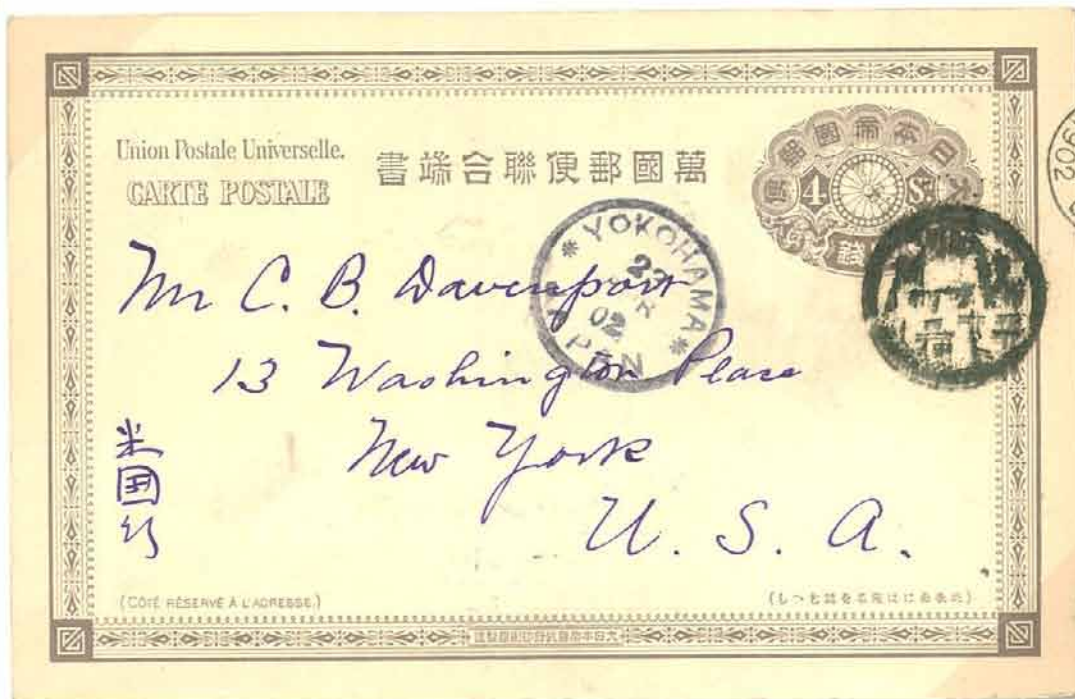 Union Postale Universelle.
CARTE POSTALE
書端合聯便郵國萬
大日本帝國郵便
4 Sn
YOKOHAMA
22
02
JAPAN
1902
Mr C. B. Davenport
13 Washington Place
New York
U. S. A.
米国行
(CÔTÉ RÉSERVÉ À L'ADRESSE.)